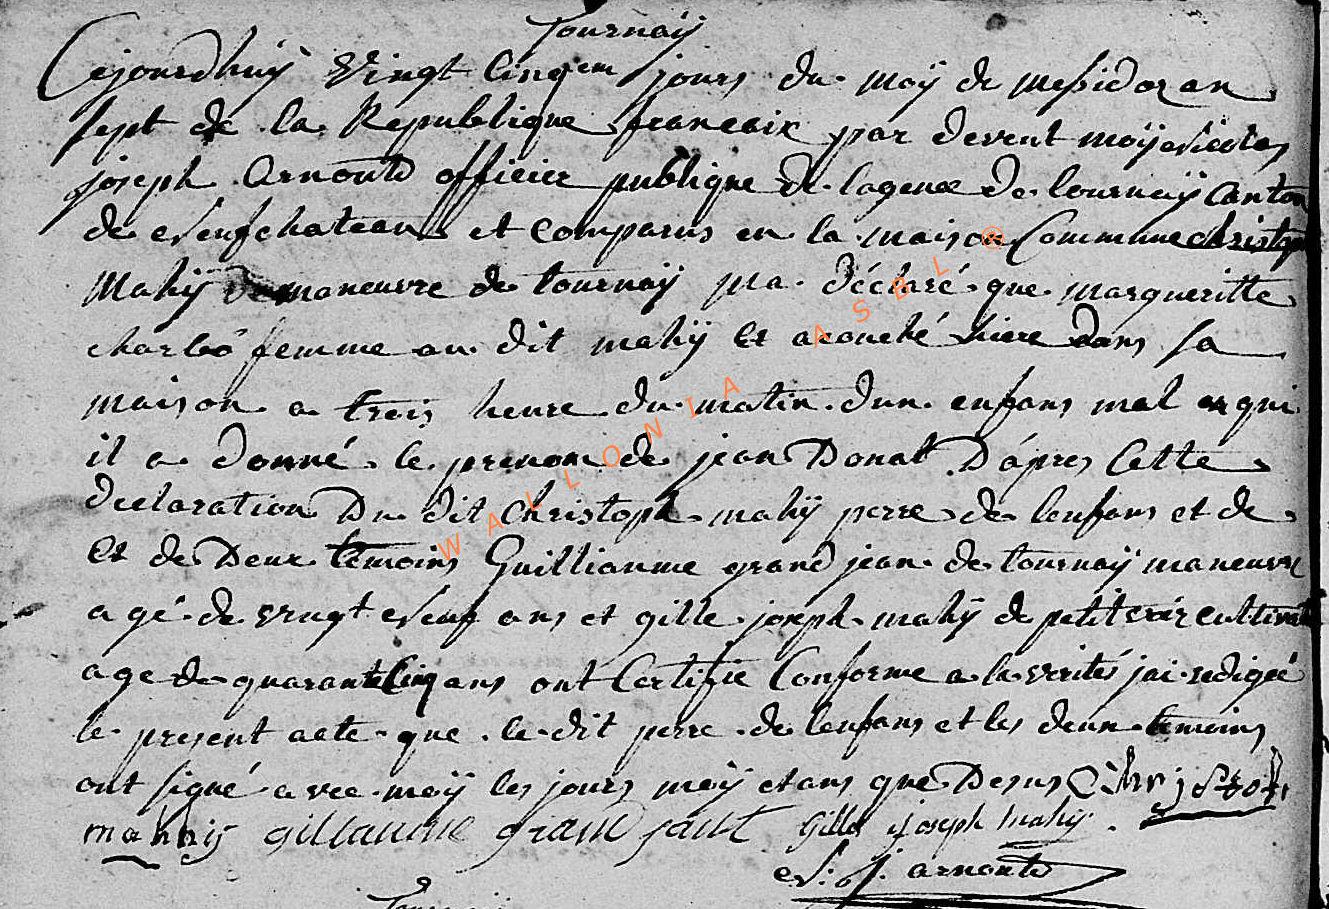 Tournaÿ
Cejourdhuÿ vingt cinqem jours du moÿ de messidor an
sept de la Republique francaix par devent moÿ Nicolas
joseph Arnould officier publique de lagence de tournaÿ Canton
de Neufchateau et comparus en la maison Commune christoph
Mahÿ maneuvre de tournaÿ ma déclaré que margueritte
charlé femme au dit mahÿ Et acouché hiere dans sa
maison a trois heure du matin dun enfans mal a qui
il a donné le prenom de jean Donat D'àpres Cette
declaration Du dit Christoph mahÿ perre de lenfans et de
Et de Deux temoins Guillianme grand jean de tournaÿ maneuvre
agé de vingt Neuf ans et gille joseph mahÿ de petitvoir cultivat
age de quarante Cinq ans ont Certifie Conforme a la verités jai redigeé
le present acte que le dit perre de lenfans et les deux temoins
ont signé avec moÿ les jours moÿ et ans que Desus Christof
mahÿ gillaume grand jant Gille joseph mahÿ
N: J. arnould
WALLONIA ASBL ®